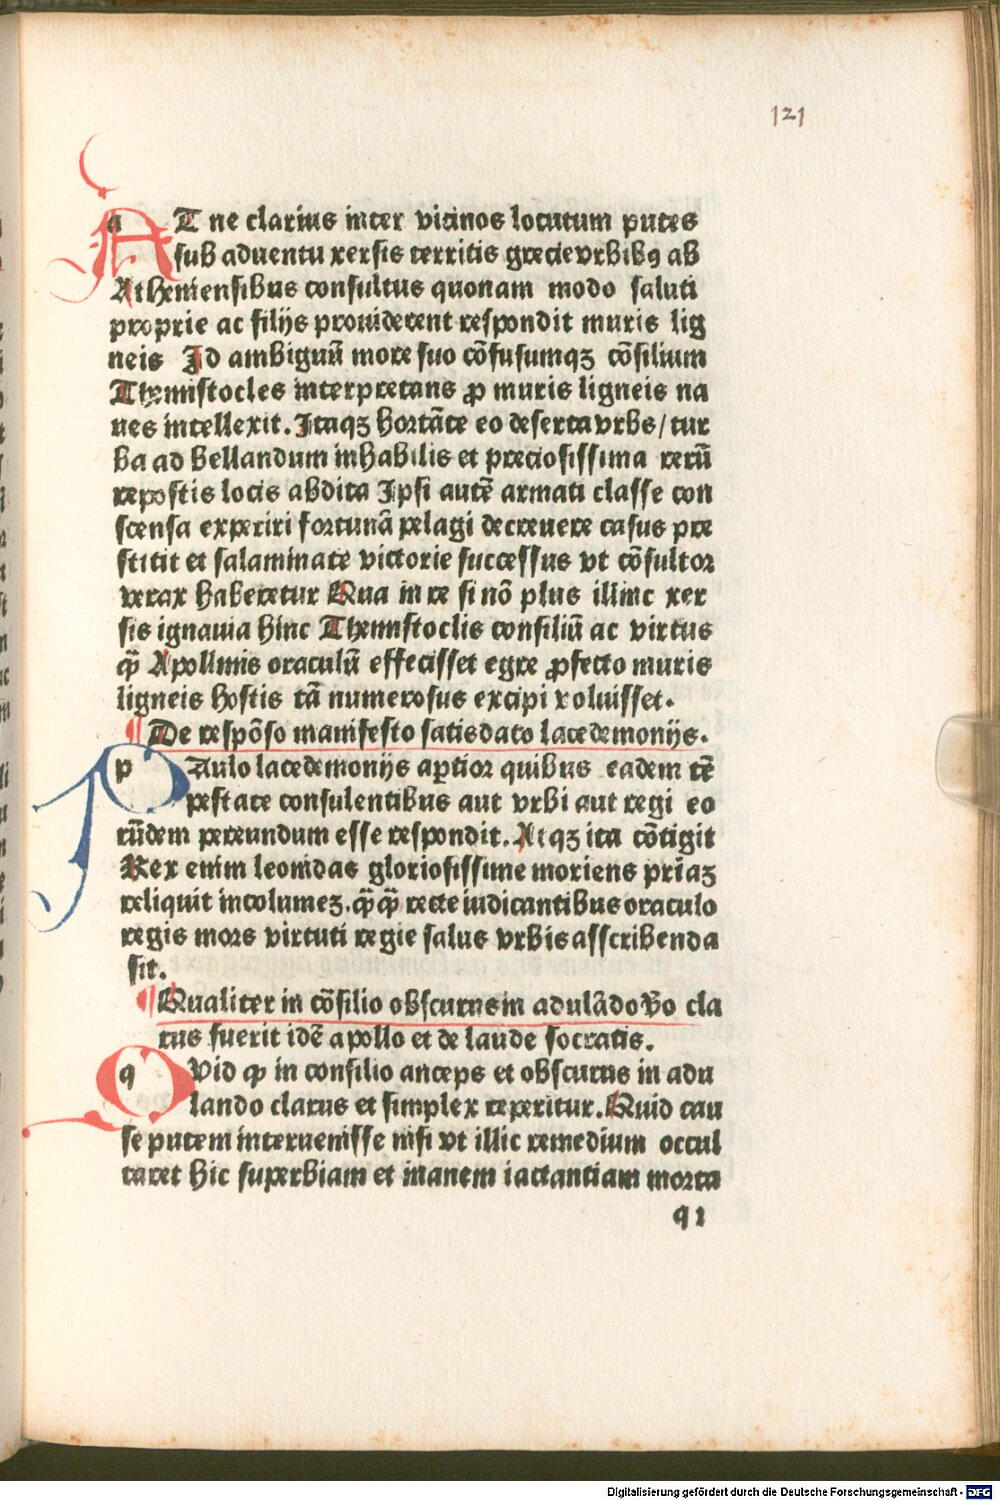 121
AT ne clarius inter vicinos locutum putes
sub aduentu xersis territis grecie vrbibꝰ ab
Atheniensibus consultus quonam modo saluti
proprie ac filijs prouiderent respondit muris lig
neis Id ambiguū more suo cōfusumqꝫ cōsilium
Themistocles interpretans ꝓ muris ligneis na
ues intellexit. Itaqꝫ hortāte eo deserta vrbs/ tur
ba ad bellandum inhabilis et preciosissima rerū
repostis locis abdita Ipsi autē armati classe con
scensa experiri fortunā pelagi decreuere casus pre
stitit et salaminate victorie successus vt cōsultor
verax haberetur Qua in re si nō plus illinc xer
sis ignauia hinc Themistoclis consiliū ac virtus
qͫ̄ Apollinis oraculū effecisset egre ꝓfecto muris
ligneis hostis tā numerosus excipi voluisset.
¶ De respōso manifesto satis dato lacedemonijs.
PAulo lacedemonijs aꝑtior quibus eadem tē
pestate consulentibus aut vrbi aut regi eo
rūdem pereundum esse respondit. Atqꝫ ita cōtigit
Rex enim leonidas gloriosissime moriens pr̄iaꝫ
reliquit incolumeꝫ. qͫ̄qͫ̄ recte iudicantibus oraculo
regis mors virtuti regie salus vrbis asscribenda
sit.
¶ Qualiter in cōsilio obscurus in adulādo v̄o cla
rus fuerit idē apollo et de laude socratis.
QVid ꝙ in consilio anceps et obscurus in adu
lando clarus et simplex reperitur. Quid cau
se putem interuenisse nisi vt illic remedium occul
taret hic superbiam et inanem iactantiam morta
q1
Digitalisierung gefördert durch die Deutsche Forschungsgemeinschaft - DFG